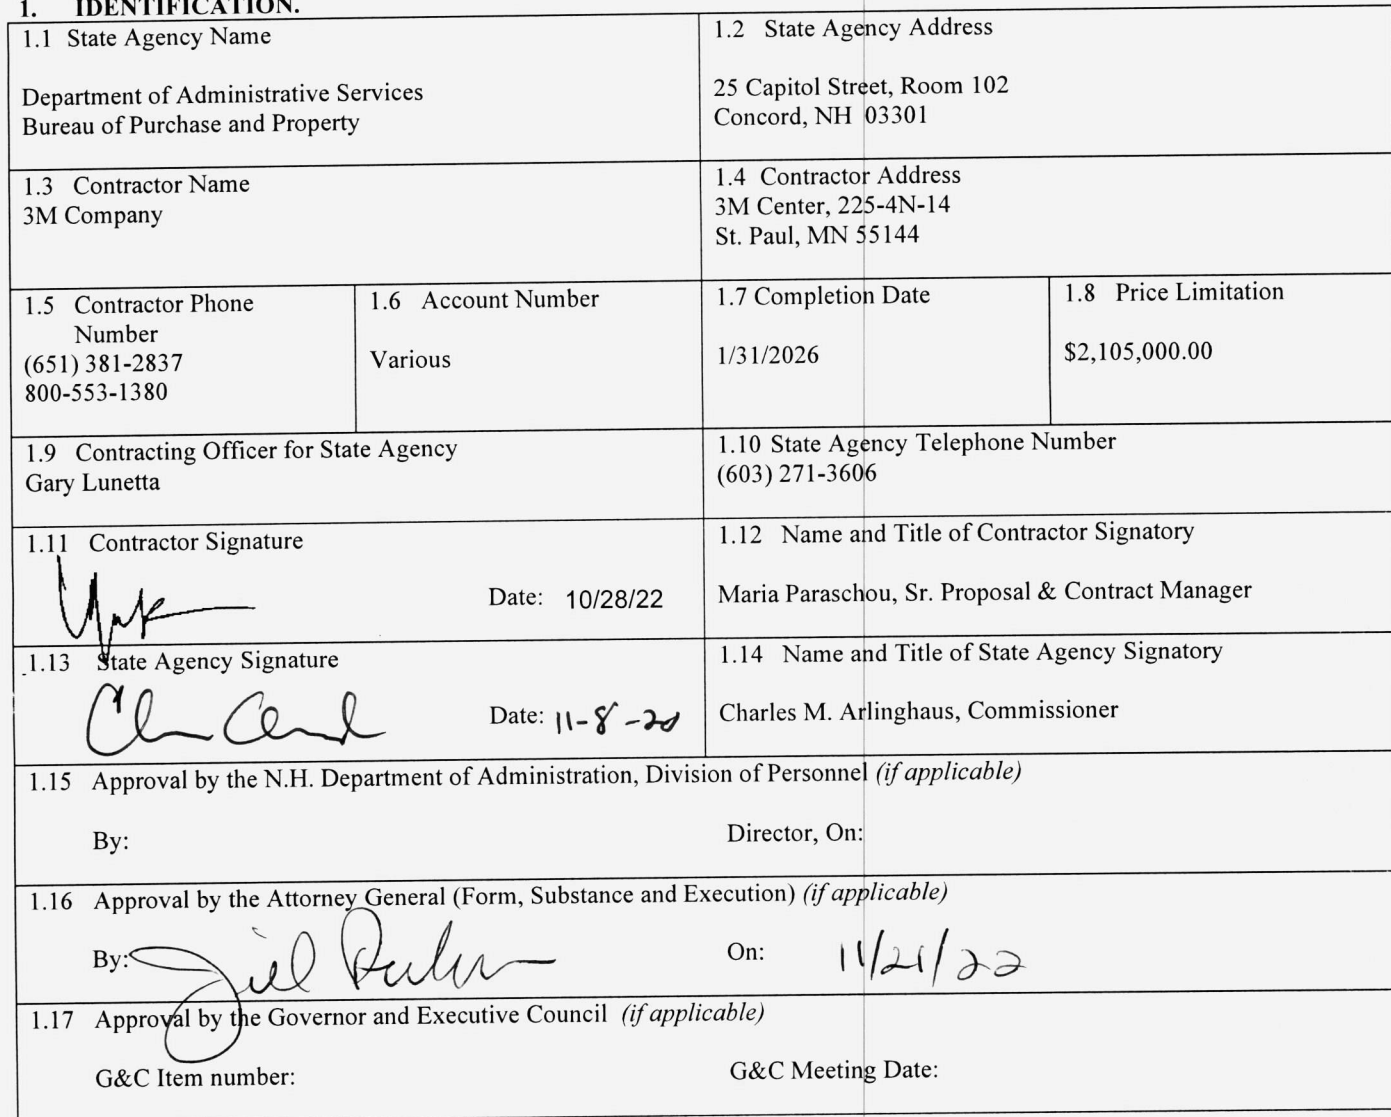 1. IDENTIFICATION.
1.1 State Agency Name
Department of Administrative Services
Bureau of Purchase and Property
1.2 State Agency Address
25 Capitol Street, Room 102
Concord, NH 03301
1.3 Contractor Name
3M Company
1.4 Contractor Address
3M Center, 225-4N-14
St. Paul, MN 55144
1.5 Contractor Phone
Number
(651) 381-2837
800-553-1380
1.6 Account Number
Various
1.7 Completion Date
1/31/2026
1.8 Price Limitation
$2,105,000.00
1.9 Contracting Officer for State Agency
Gary Lunetta
1.10 State Agency Telephone Number
(603) 271-3606
1.11 Contractor Signature
Date: 10/28/22
1.12 Name and Title of Contractor Signatory
Maria Paraschou, Sr. Proposal & Contract Manager
1.13 State Agency Signature
Date: 11-8-
1.14 Name and Title of State Agency Signatory
Charles M. Arlinghaus, Commissioner
1.15 Approval by the N.H. Department of Administration, Division of Personnel (if applicable)
By:
Director, On:
1.16 Approval by the Attorney General (Form, Substance and Execution) (if applicable)
By:
On: 11/21/22
1.17 Approval by the Governor and Executive Council (if applicable)
G&C Item number:
G&C Meeting Date: